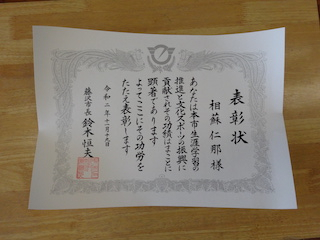 表彰状
相蘇仁那様
あなたは本市生涯学習の
推進と文化スポーツの振興に
貢献されその功績はまことに
顕著であります
よってここにその功労を
たたえ表彰します
令和二年十一月十九日
藤沢市長 鈴木恒夫